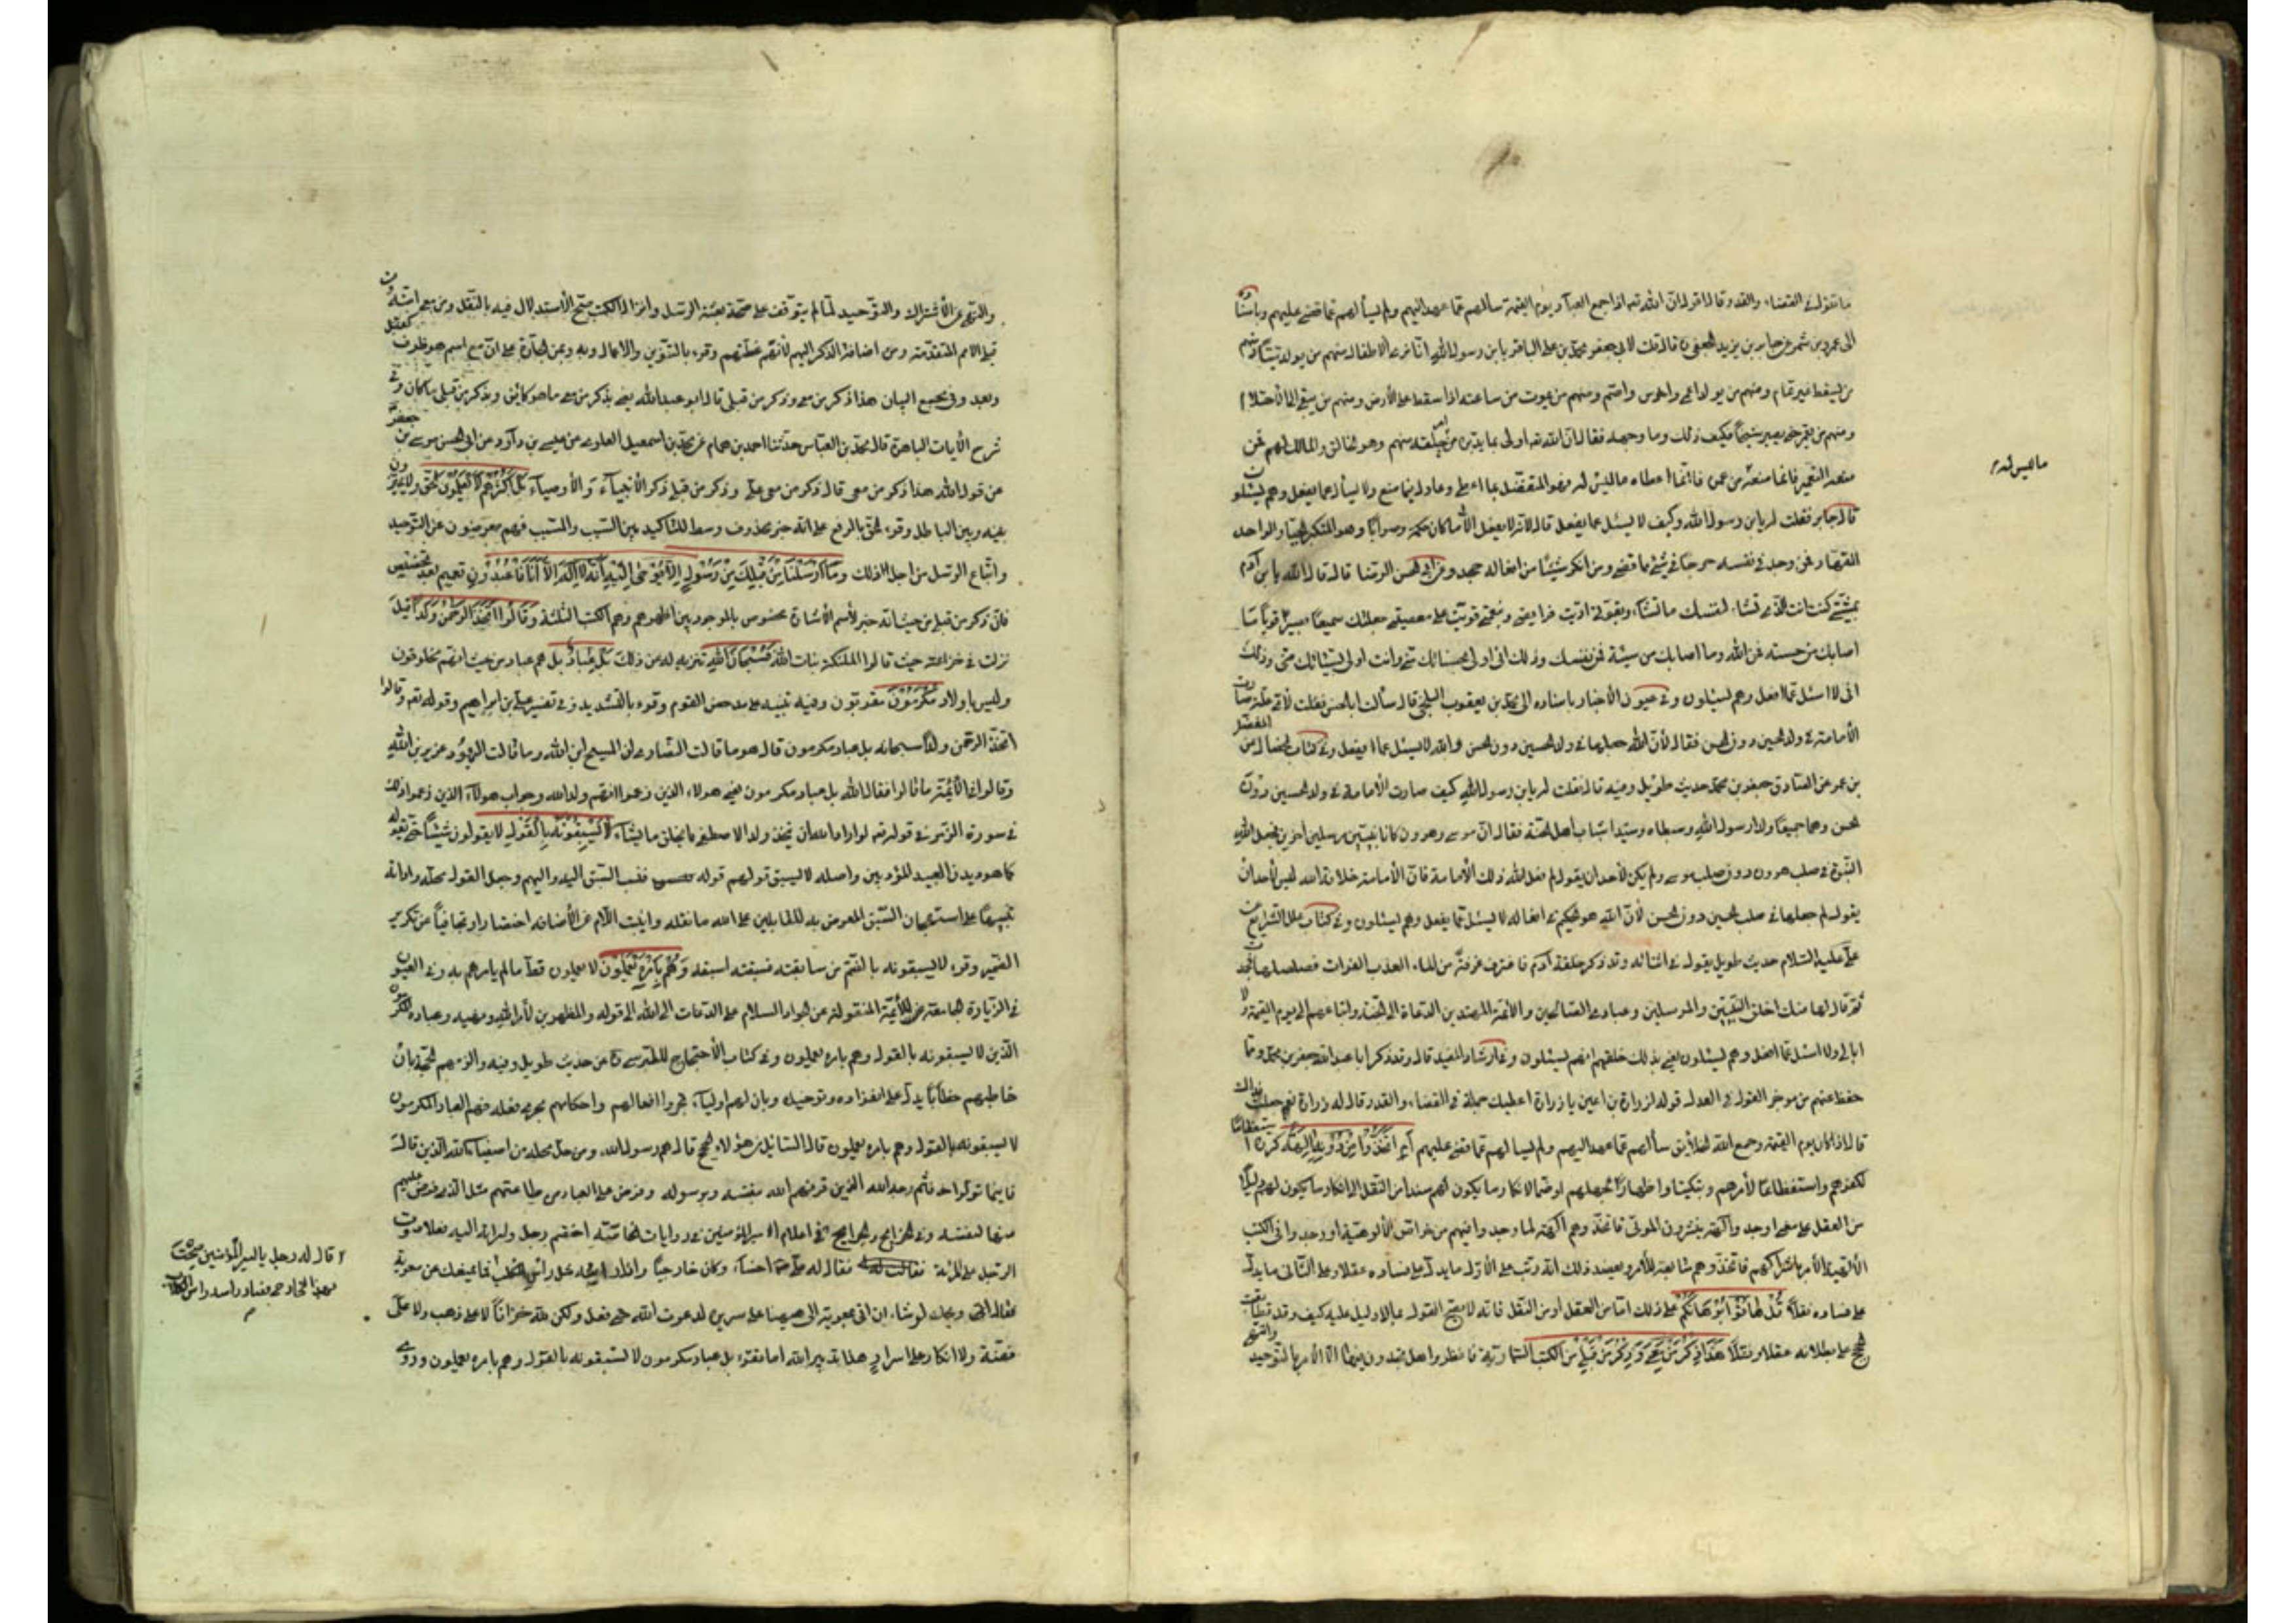 ما تقول في القضاء والقدر قال اقول ان الله تع اذا جمع العباد يوم القيمة سألهم عما عهد اليهم ولم يسألهم عما قضى عليهم وباسناده
الى عمرو بن شمر عن جابر بن يزيد الجعفي قال قلت لابي جعفر محمد بن علي الباقر يا بن رسول الله انا نرى الاطفال منهم من يولد ميتا ومنهم
من يسقط غير تمام ومنهم من يولد اعمى واخرس واصم ومنهم من يموت من ساعته اذا سقط على الأرض ومنهم من يبقى الى الاحتلام
ومنهم من يعمر حتى يصير شيخا فكيف ذلك وما وجهه فقال ان الله تع اولى بما يدبره من امر خلقه منهم وهو الخالق والمالك لهم فمن
منعه التعمير فانما منعه من عمره فانما اعطاه ما ليس له فهو المتفضل بما اعطى وعادل فيما منع ولا يسأل عما يفعل وهم يسئلون
ما ليس له م
قال جابر فقلت له يا بن رسول الله وكيف لا يسئل عما يفعل قال لانه لا يفعل الا ما كان حكمة وصوابا وهو المتكبر الجبار والواحد
القهار فمن وجد في نفسه حرجا في شئ مما قضى ومن انكر شيئا من افعاله جحد وعن ابي الحسن الرضا قال قال الله يا بن آدم
بمشيتي كنت انت الذي تشاء لنفسك ما تشاء وبقوتي اديت فرايضي وبنعمتي قويت على معصيتي جعلتك سميعا بصيرا قويا ما
اصابك من حسنة فمن الله وما اصابك من سيئة فمن نفسك وذلك اني اولى بحسناتك منك وانت اولى بسيئاتك مني وذلك
اني لا اسئل عما افعل وهم يسئلون وفي عيون الاخبار باسناده الى محمد بن يعقوب البلخي قال سألت ابا الحسن فقلت لأي علة صارت
الأمامة في ولد الحسين دون الحسن فقال لأن الله جعلها في ولد الحسين دون الحسن والله لا يسئل عما يفعل وفي كتاب الخصال عن المفضل
بن عمر عن الصادق جعفر بن محمد حديث طويل وفيه قال فقلت له يا بن رسول الله كيف صارت الأمامة في ولد الحسين دون
الحسن وهما جميعا ولدا رسول الله وسبطاه وسيدا شباب اهل الجنة فقال ان موسى وهرون كانا نبيين مرسلين اخوين فجعل الله
النبوة في صلب هرون دون صلب موسى ولم يكن لأحد ان يقول لم فعل الله ذلك الأمامة فان الأمامة خلافة الله ليس لأحد ان
يقول لم جعلها في صلب الحسين دون الحسن لأن الله هو الحكيم في افعاله لا يسئل عما يفعل وهم يسئلون وفي كتاب علل الشرايع عن
علي عليه السلام حديث طويل يقول في اثنائه وقد ذكر خلقة آدم فاغترف غرفة من الماء العذب الفرات فصلصلها فجمدت
ثم قال لها منك اخلق النبيين والمرسلين وعبادي الصالحين والائمة المهتدين الدعاة الى الجنة واتباعهم الى يوم القيمة ولا
ابالي ولا اسئل عما افعل وهم يسئلون يعني بذلك خلقهم انهم يسئلون وفي ارشاد المفيد قال وقد ذكر ابا عبد الله جعفر بن محمد ومما
حفظ عنهم من موجز القول في العدل قوله لزرارة بن اعين يا زرارة اعطيك جملة في القضاء والقدر قال له زرارة نعم جعلت فداك
قال اذا كان يوم القيمة وجمع الله الخلايق سألهم عما عهد اليهم ولم يسألهم عما قضى عليهم أم اتخذوا من دونه آلهة كرره استعظاما
لكفرهم واستفظاعا لأمرهم وتبكيتا واظهارا لجهلهم او ضما لانكار ما يكون لهم سندا من النقل الى انكار ما يكون لهم دليلا
من العقل على معنى اوجد وآلهة ينشرون الموتى فاتخذوهم آلهة لما وجدوا فيهم من خواص الألوهية او وجدوا في الكتب
الألهية الأمر باشراكهم فاتخذوهم متابعة للأمر ويعضد ذلك انه رتب على الأول ما يدل على فساده عقلا وعلى الثاني ما يدل
على فساده نقلا قل هاتوا برهانكم على ذلك اما من العقل او من النقل فانه لا يصح القول بما لا دليل عليه كيف وقد تطابقت
الحجج على بطلانه عقلا ونقلا هذا ذكر من معي وذكر من قبلي من الكتب السماوية فانظروا هل تجدون فيها الا الأمر بالتوحيد
والنهي عن الأشراك والتوحيد لما لم يتوقف على صحته بعثة الرسل وانزال الكتب صح الأستدلال فيه بالنقل ومن معي امته ومن
قبلي الامم المتقدمة ومن اضافة الذكر اليهم لأنه عظتهم وقرئ بالتنوين والاعمال وبه وبمن الجارة على ان مع اسم هو ظرف كقبل
وبعد وفي مجمع البيان هذا ذكر من معي وذكر من قبلي قال ابو عبد الله يعني بذكر من معي ما هو كائن وبذكر من قبلي ما كان وفي
شرح الآيات الباهرة قال محمد بن العباس حدثنا احمد بن همام عن محمد بن اسمعيل العلوي عن عيسى بن داود عن ابي الحسن موسى بن جعفر
عن قول الله هذا ذكر من معي قال ذكر من معي علي وذكر من قبلي ذكر الأنبياء والأوصياء بل اكثرهم لا يعلمون الحق ولا يميزون
بينه وبين الباطل وقرئ الحق بالرفع على انه خبر محذوف وسط للتأكيد بين السبب والمسبب فهم معرضون عن التوحيد
واتباع الرسل من اجل ذلك وما ارسلنا من قبلك من رسول الا نوحي اليه انه لا اله الا انا فاعبدون تعميم بعد تخصيص
فان ذكر من قبلي من حيث انه خبر لأسم الأشارة مخصوص بالموجود بين اظهرهم وهم الكتب الثلثة وقالوا اتخذ الرحمن ولدا قيل
نزلت في خزاعة حيث قالوا الملئكة بنات الله سبحانه تنزيه له عن ذلك بل عباد بل هم عباد من حيث انهم مخلوقون
وليس باولاد مكرمون مقربون وفيه تنبيه على مدحض القوم وقرئ بالتشديد وفي تفسير علي بن ابراهيم وقوله تع وقالوا
اتخذ الرحمن ولدا سبحانه بل عباد مكرمون قال هو ما قالت النصارى ان المسيح ابن الله وما قالت اليهود عزير بن الله
وقالوا في الأئمة ما قالوا فقال الله بل عباد مكرمون يعني هولاء الذين زعموا انهم ولد الله وجواب هولاء الذين زعموا ذلك
في سورة الزمر في قوله تع لو اراد الله ان يتخذ ولدا لاصطفى مما يخلق ما يشاء لا يسبقونه بالقول لا يقولون شيئا حتى يقوله
كما هو ديدن العبيد المؤدبين واصله لا يسبق قولهم قوله فنسب السبق اليه واليهم وجعل القول محله واداته
تنبيها على استهجان السبق المعرض به للقائلين على الله ما لم يقله وانيب اللام عن الأضافة اختصارا وتجافيا عن تكرير
الضمير وقرئ لا يسبقونه بالضم من سابقته فسبقته اسبقه وهم بامره يعملون لا يعملون قط ما لم يامرهم به وفي العيون
في الزيارة الجامعة للأئمة المنقولة عن الجواد السلام على الدعاة الى الله الى قوله والمظهرين لأمر الله ونهيه وعباده المكرمين
الذين لا يسبقونه بالقول وهم بامره يعملون وفي كتاب الأحتجاج للطبرسي من حديث طويل وفيه والزمهم الحجة بان
خاطبهم خطابا يدل على انفراده وتوحيده وبان لهم اولياء تجري افعالهم واحكامهم مجرى فعله فهم العباد المكرمون
لا يسبقونه بالقول وهم بامره يعملون قال السائل من هؤلاء الحجج قال هم رسول الله ومن حل محله من اصفياء الله الذين قال
فاينما تولوا فثم وجه الله الذين قرنهم الله بنفسه وبرسوله وفرض على العباد من طاعتهم مثل الذي فرض عليهم
منها لنفسه وفي الخرايج والجرايح في اعلام امير المؤمنين في روايات الخاصة اختصم رجل وامرأة اليه فعلا صوت
الرجل على المرأة فقال له علي اخسأ وكان خارجيا واذا رأسه رأس الكلب فما يمنعك عن معوية
ا قال له رجل يا امير المؤمنين صحت
بهذا الخارجي فصار رأسه رأس الكلب
م
فقال ويحك لو اشاء ان اتي بمعوية الى ههنا على سريره لدعوت الله حتى فعل ولكن لله خزانا لا على ذهب ولا على
فضة ولا انكار على اسرار هذا تدبير الله اما تقرء بل عباد مكرمون لا يسبقونه بالقول وهم بامره يعملون وروى